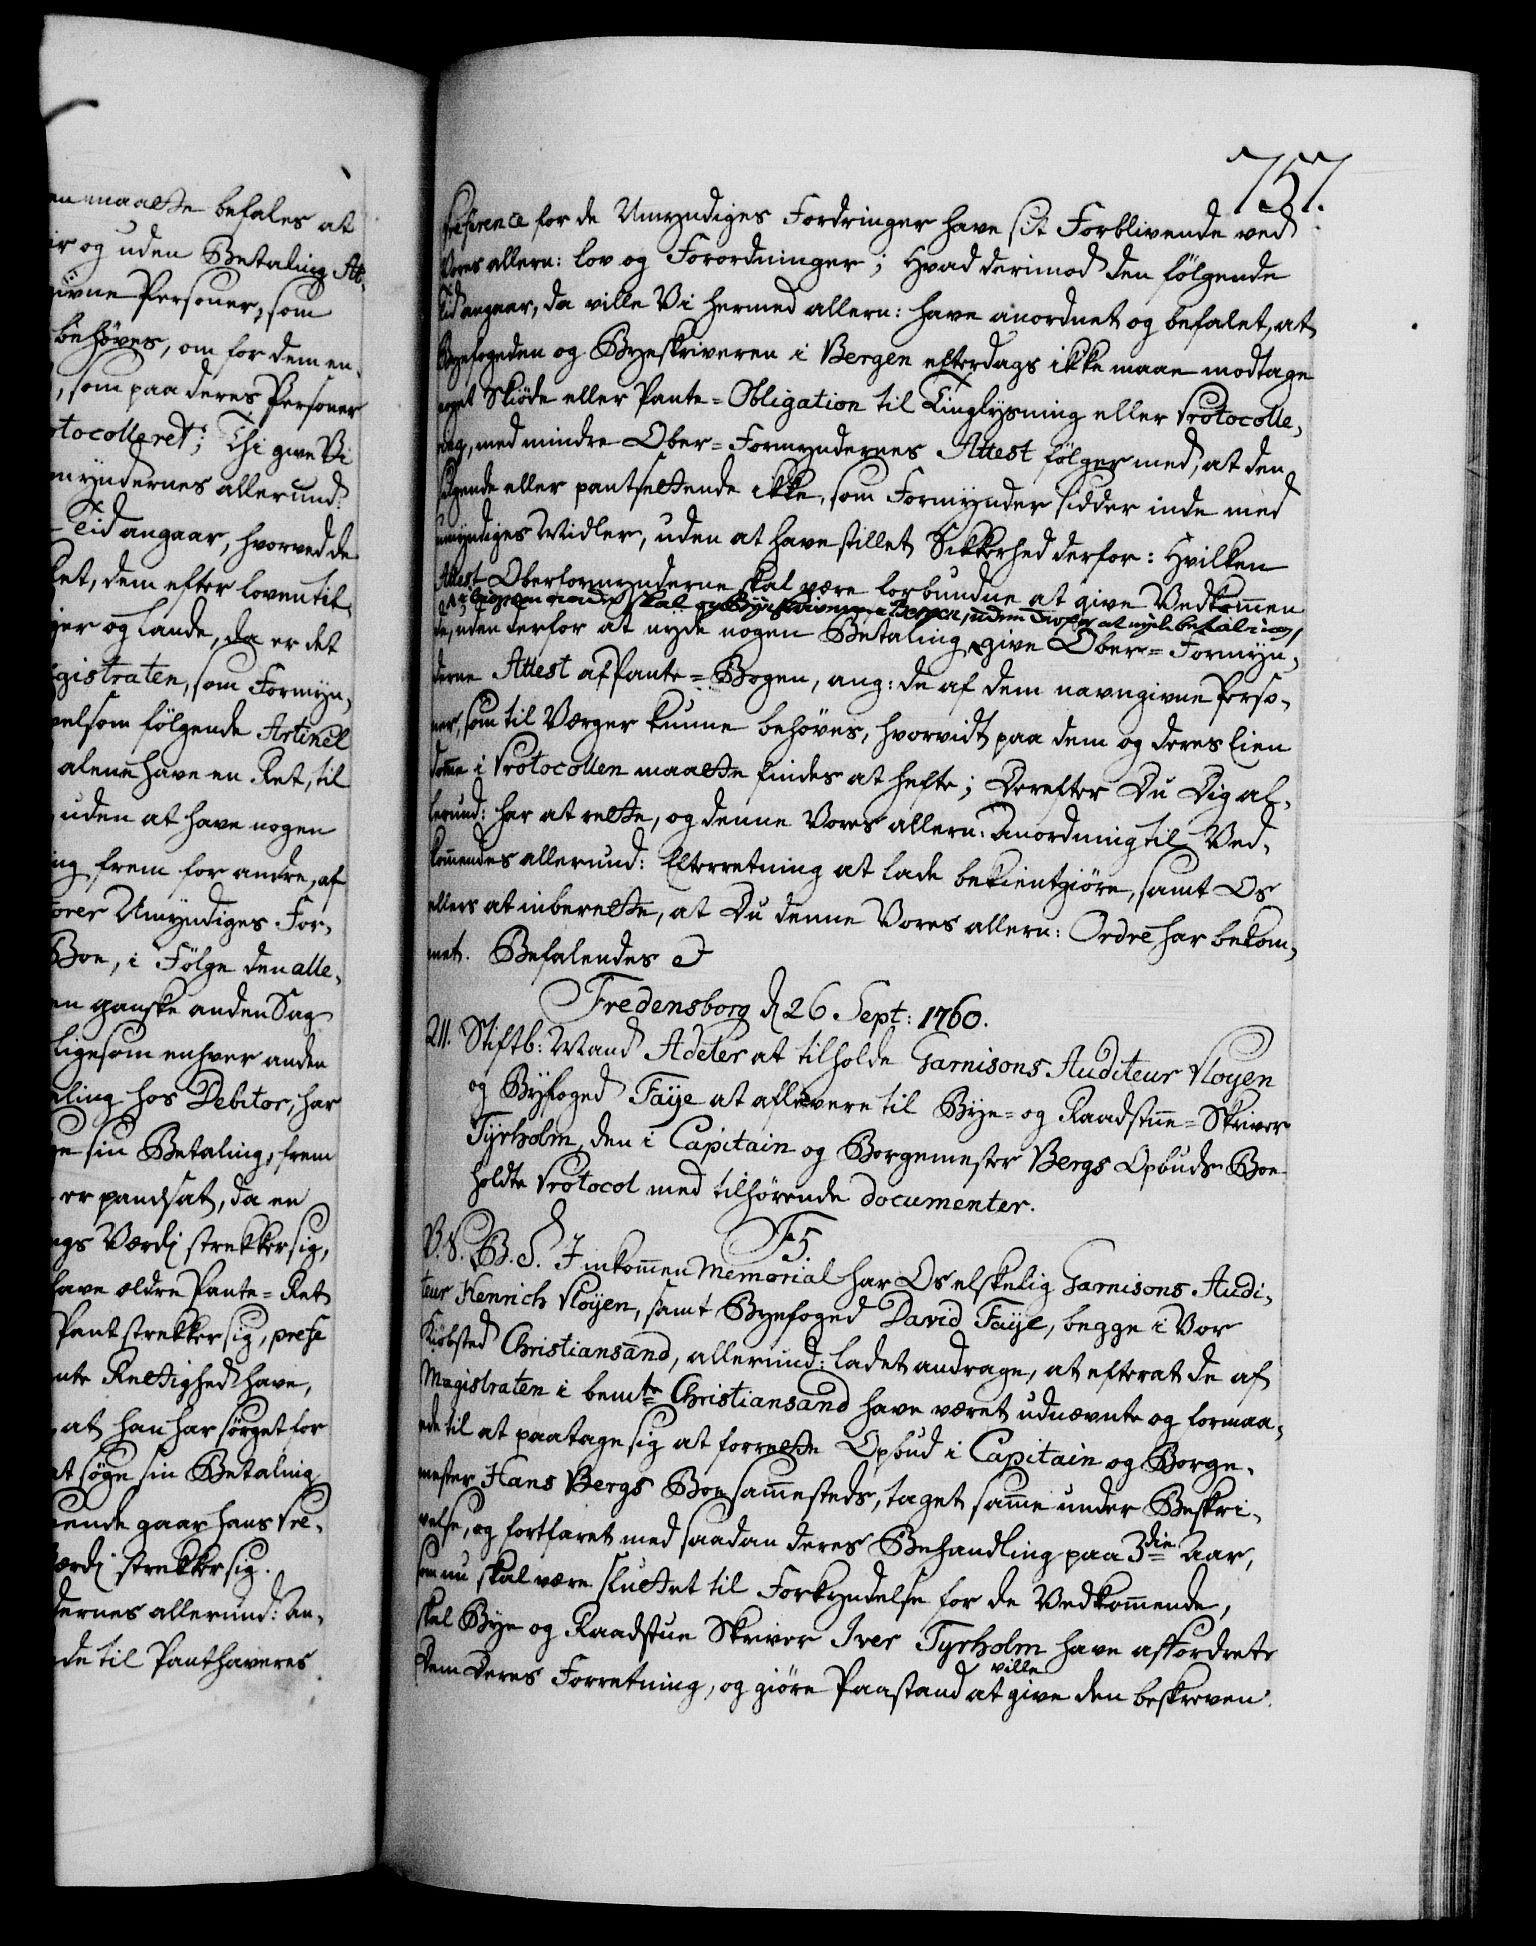 en maatte befales at
ir og uden Betaling At-
givne Personer, som
behøves, om for dem en-
, som paa deres Personer
otocolleret; Thi give Vi
myndernes allerund:
Tid angaar, hvorved de
let, dem efter loven til-
yer og Lande, da er det
gistraten, som Formyn-
velsom følgende Articel
alene have en Ret, til
uden at have nogen
ing frem for andre, af
Umyndiges For-
Boe, i Følge den alle-
en ganske anden Sag
ligesom enhver anden
ling hos Debitor, har
ge sin Betaling, frem
er pandsat, da en
ngs Værdj strekker sig,
have ældre Pante-Ret
Pant strekker sig, prefe
nte Rettighed have,
, at han har sørget for
at søge sin Betaling
ende gaar hans Pre-
værdj strekker sig.
dernes allerund: An-
de til Panthaveres
757.
præference for de Umyndiges Fordringer have sit Forblivende ved
Vores allern: Lov og Forordninger; Hvad derimod den følgende
Tid angaar, da ville Vi hermed allern: have anordnet og befalet, at
Byefogden og Byeskriveren i Bergen efterdags ikke maae modtage
noget Skiøde eller Pante-Obligation til Tinglysning eller Protocolle-
ring, med mindre Ober-Formyndernes Attest følger med, at den
sælgende eller pantsettende ikke, som Formynder sidder inde med
umyndiges Midler, uden at have stillet Sikkerhed derfor: Hvilken
Attest Oberformynderne skal være forbundne at give Vedkommen
skal og Byeskriveren i Bergen, uden derfor at nyde betaling,
de, uden derfor at nyde nogen Betaling, give Ober-Formyn-
derne Attest af Pante-Bogen, ang: de af dem navngivne Perso-
ner, som til Værger kunne behøves, hvorvidt paa dem og deres Eien
domme i Protocollen maatte findes at hefte; Derefter Du Dig al-
lerund: har at rette, og denne Vores allern: Anordning til Ved-
kommendes allerund: Efterretning at lade bekientgiøre, samt Os
ellers at inberette, at Du denne Vores allern: Ordre har bekom-
met. Befalendes
Fredensborg d 26 Sept: 1760.
211. Stiftb: Mand Adeler at tilholde Garnisons Auditeur Ployen
og Byfoged Faye at aflevere til Bye- og Raadstue-Skriver
Tyrholm, den i Capitain og Borgemester Bergs Opbuds Boe
holdte Protocol med tilhørende documenter.
F5.
P.S. G.S. I inkommen Memorial har Os elskelig Garnisons Audi-
teur Henrich Ployen, samt Byefoged David Faye, begge i Vor
Kiøbsted Christiansand, allerund: ladet andrage, at efterat de af
Magistraten i bemte Christiansand have været udnævnte og formaa-
ede til at paatage sig at forrette Opbud i Capitain og Borge-
mester Hans Bergs Boe sammesteds, taget samme under Beskri-
velse, og fortfaret med saadan deres Behandling paa 3die Aar,
som nu skal være sluttet til Forkyndelse for de Vedkommende,
skal Bye og Raadstue Skriver Iver Tyrholm have affordrete
dem deres Forretning, og giøre Paastand at ville give den beskreven.